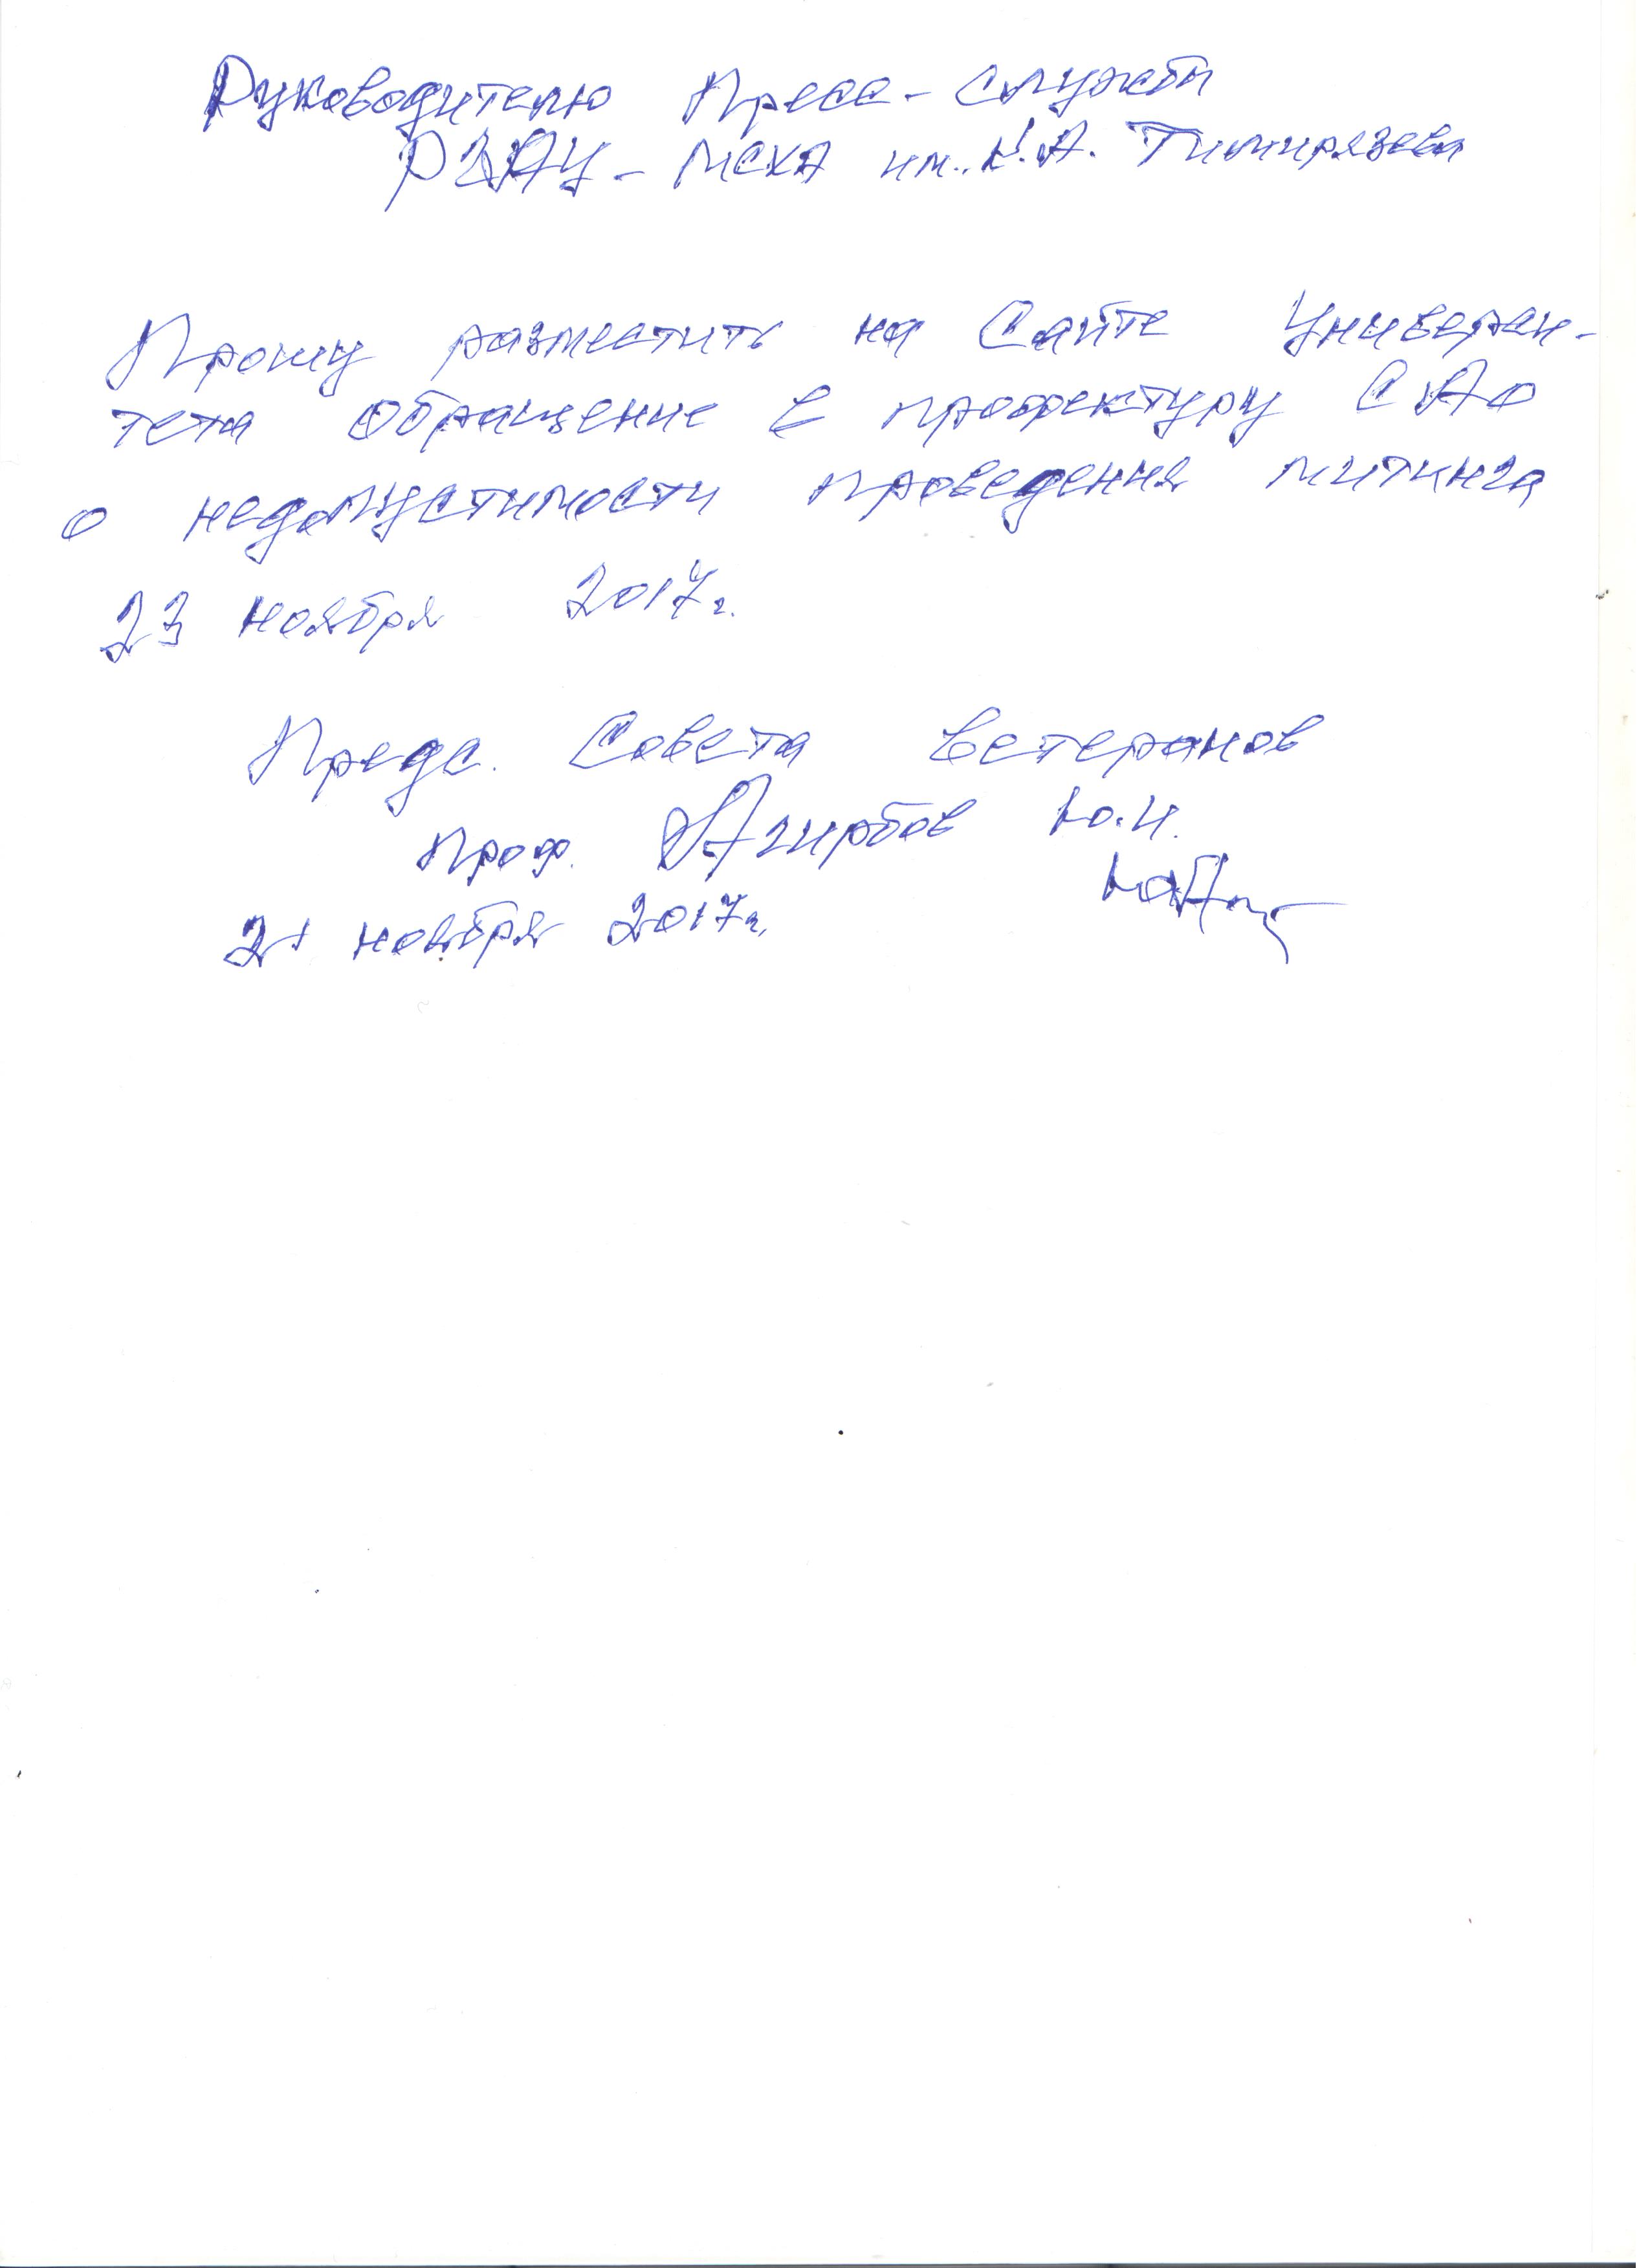 Руководителю Пресс-службы
РГАУ-МСХА им. К.А. Тимирязева
Прошу разместить на Сайте Универси-
тета Обращение в профектуру САО
о недопустимости проведения митинга
23 ноября 2017г.
Предс. Совета Ветеранов
проф. Агирбов Ю.И.
21 ноября 2017г.